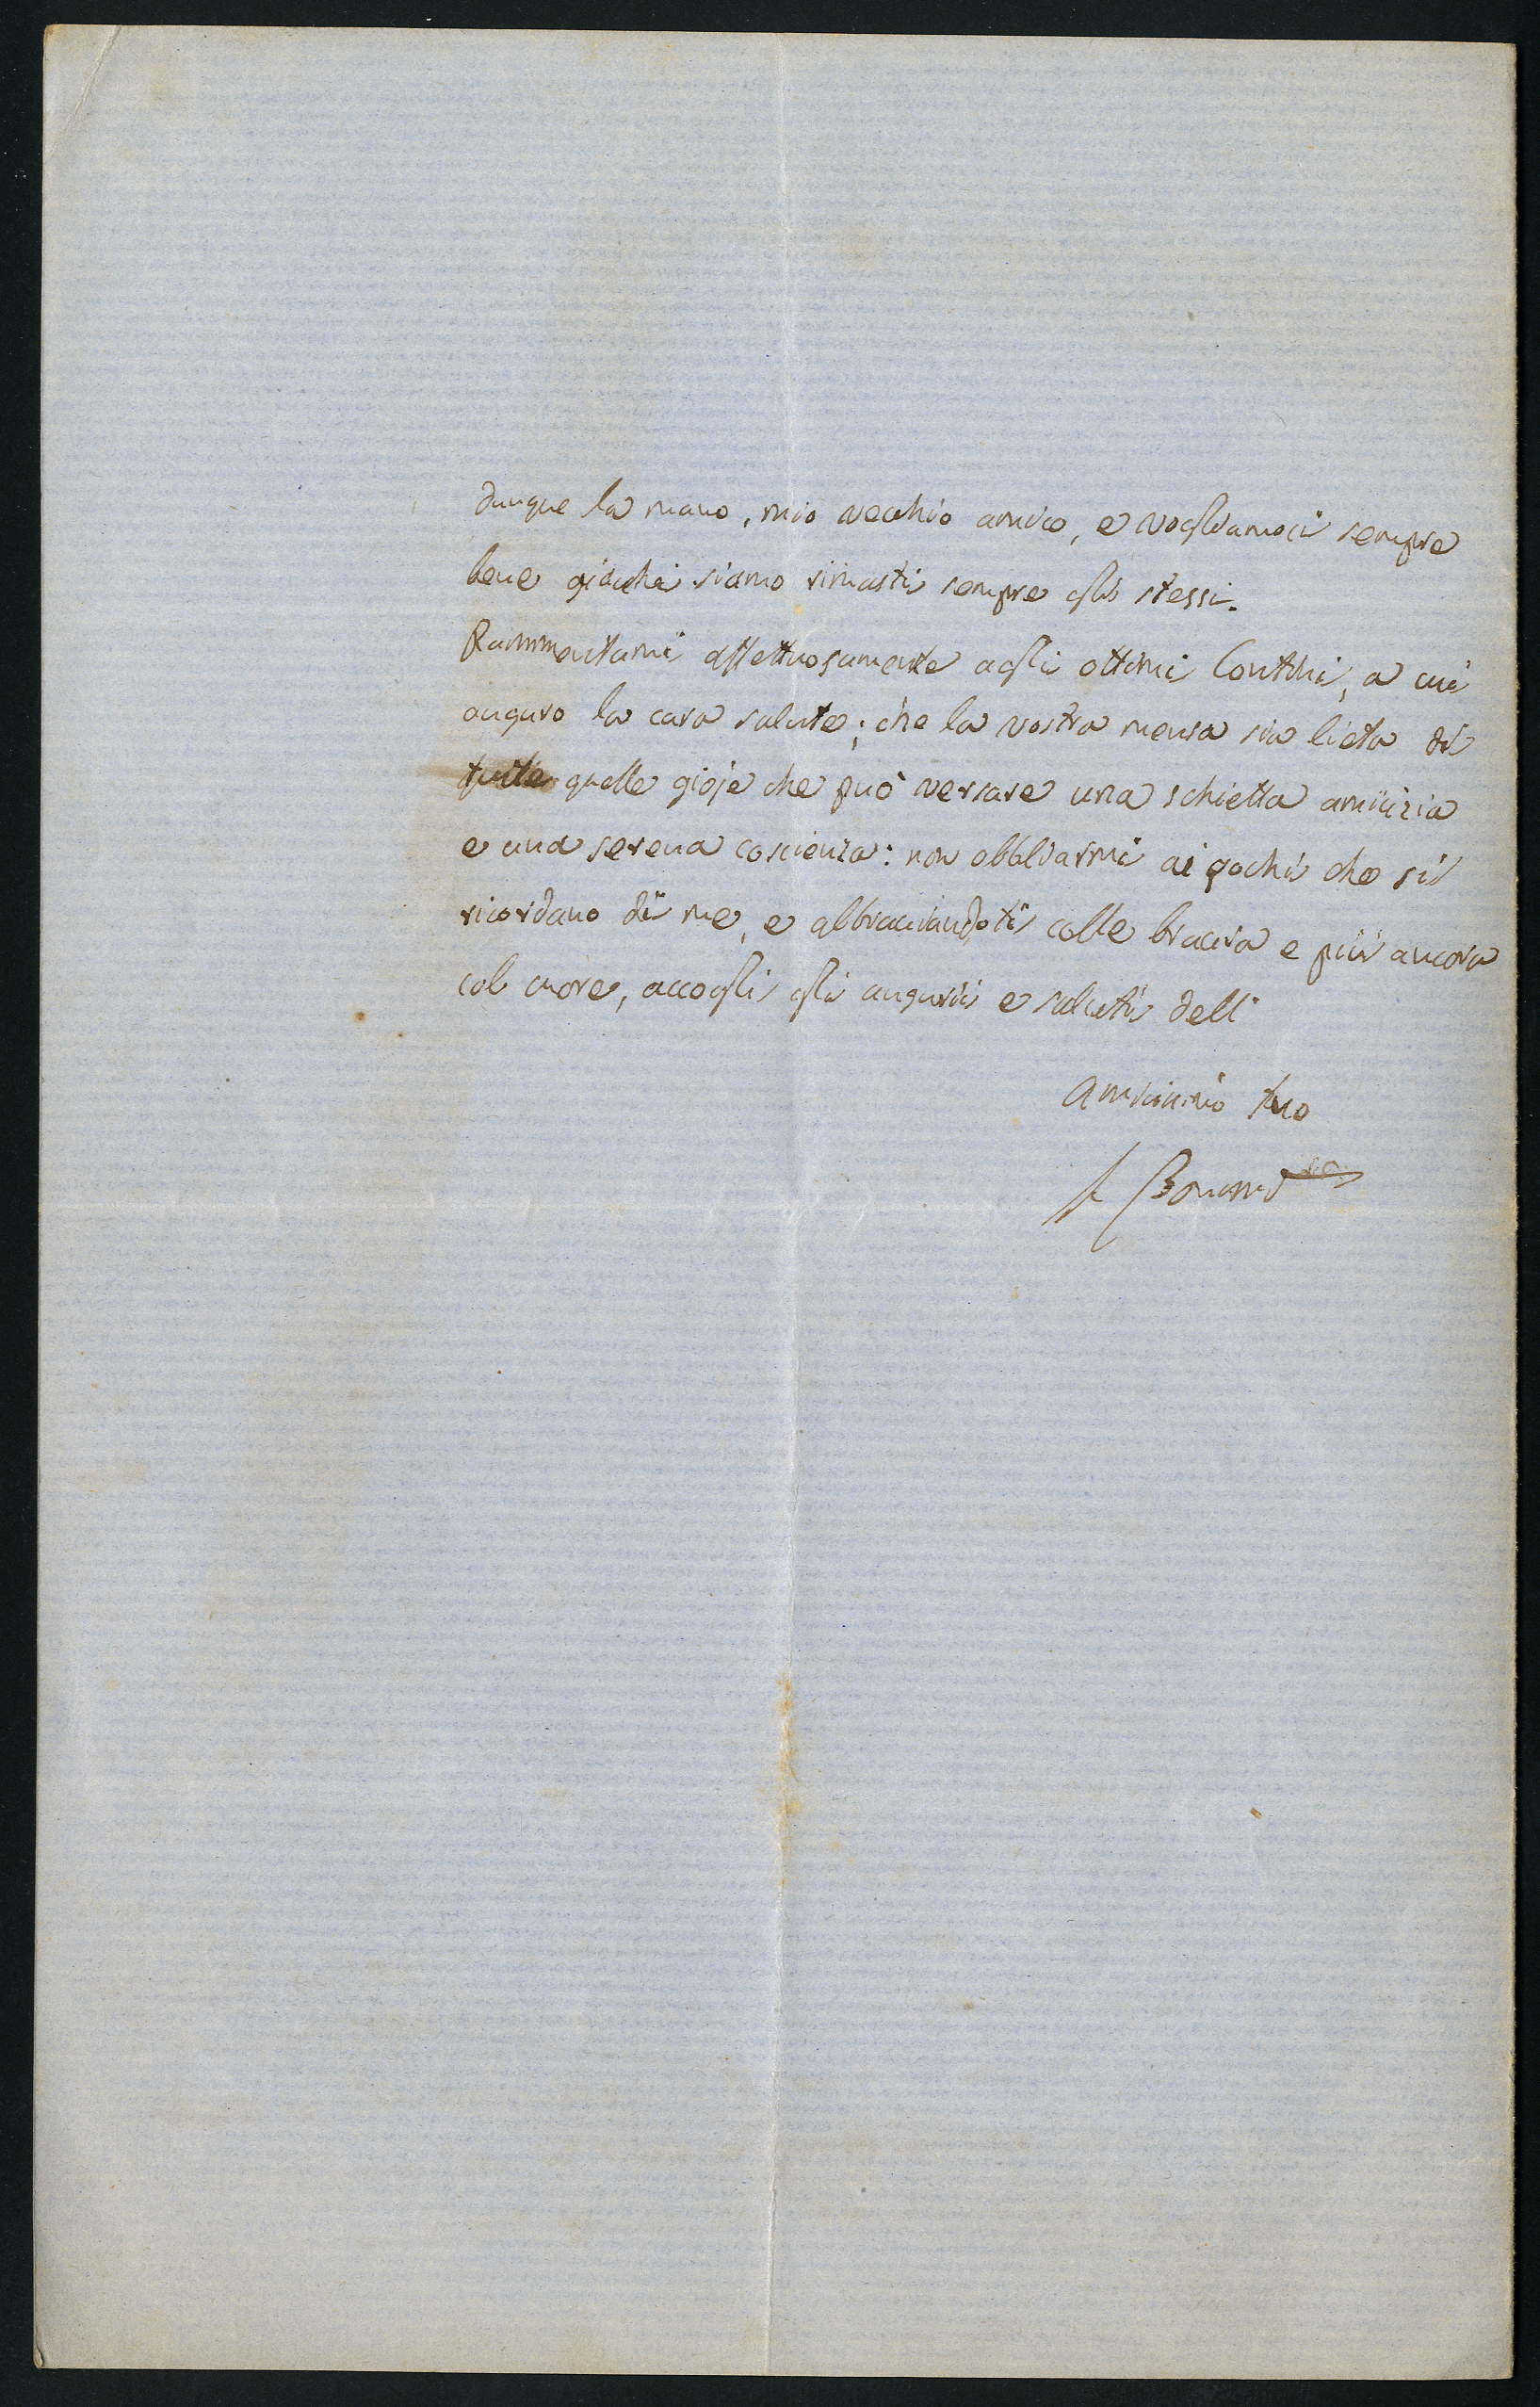 dunque la mano, mio vecchio amico, e vogliamoci sempre
bene giacché siamo rimasti sempre gli stessi.
Rammentami affettuosamente agli ottimi Contini, a cui
auguro la cara salute; che la vostra mensa sia lieta di
tutte quelle gioje che può versare una schietta amicizia
e una serena coscienza: non obbliarmi ai pochi che si
ricordano di me, e abbracciandoti colle braccia e più ancora
col cuore, accogli gli augurii e saluti dell'
amicissimo tuo